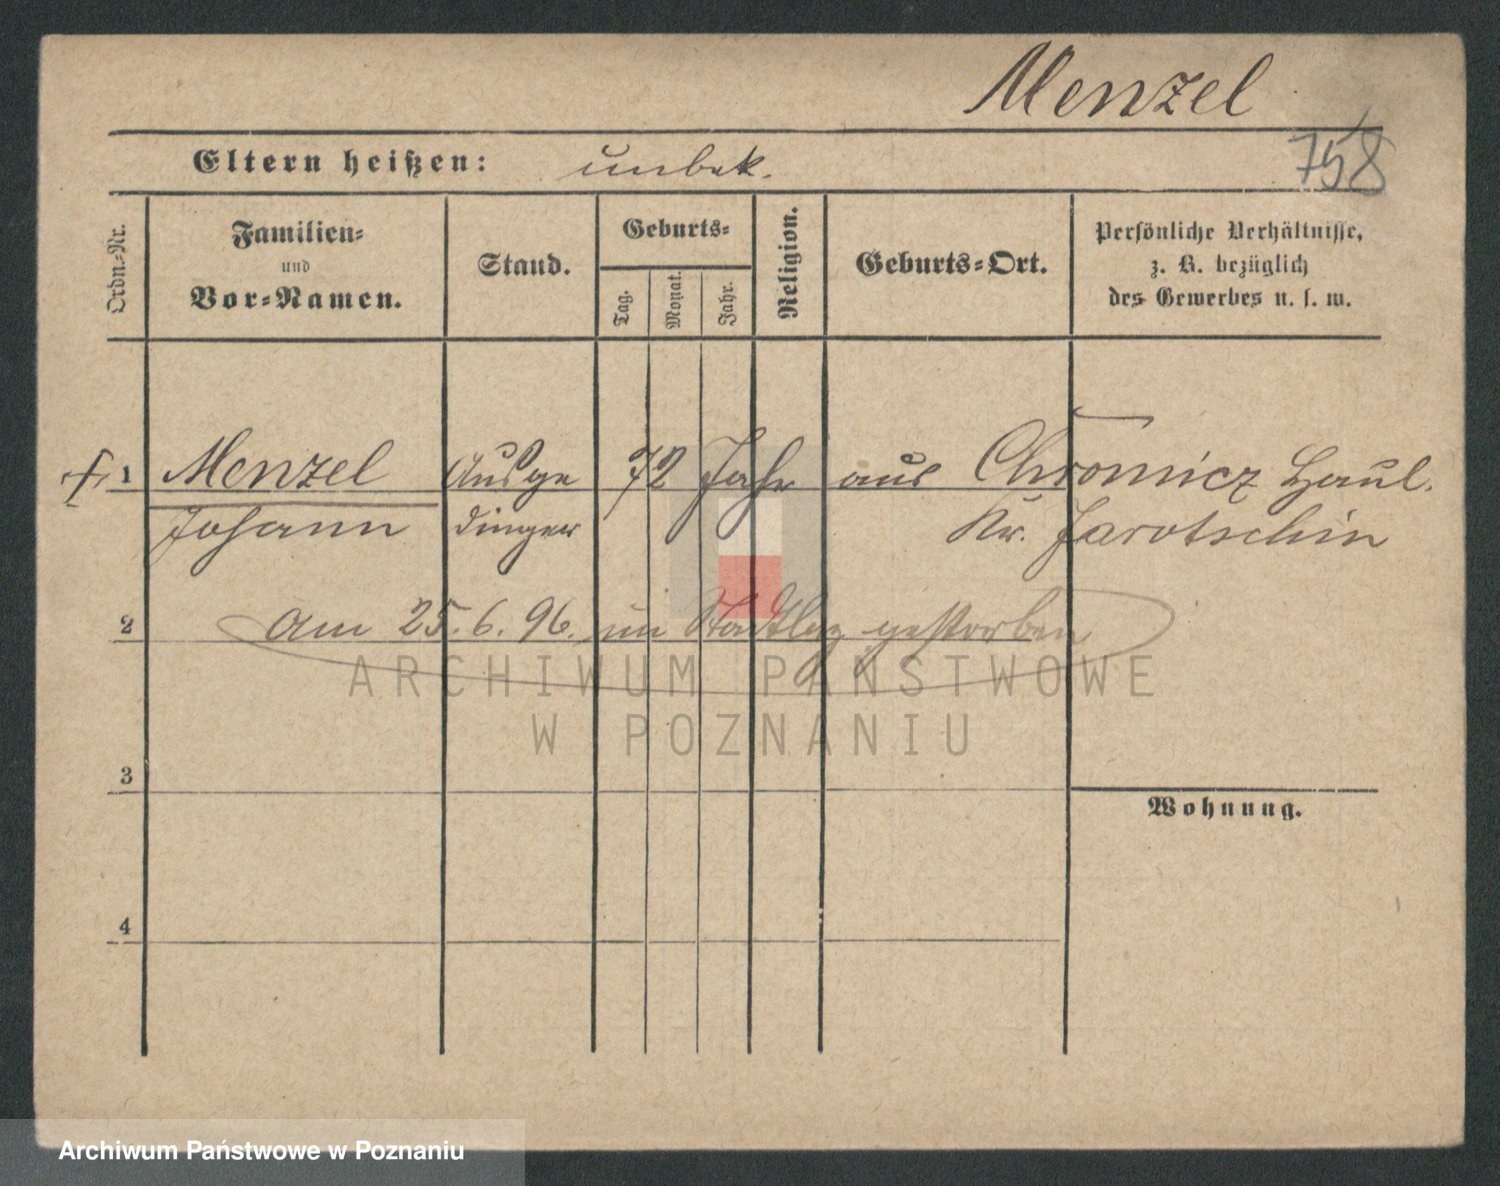 Menzel
758
Eltern heißen: unbek.
Ordn.-Nr.
Familien-
und
Vor-Namen.
Stand.
Geburts-
Tag.
Monat.
Jahr.
Religion.
Geburts-Ort.
Persönliche Verhältnisse,
z. B. bezüglich
des Gewerbes u. s. w.
1 Menzel Ausge 72 Jahr aus Chromicz Haul.
Johann dinger Kr. Jarotschin
2 am 25.6.96. im Stadtlaz gestorben
ARCHIWUM PAŃSTWOWE
W POZNANIU
3
Wohnung.
4
Archiwum Państwowe w Poznaniu